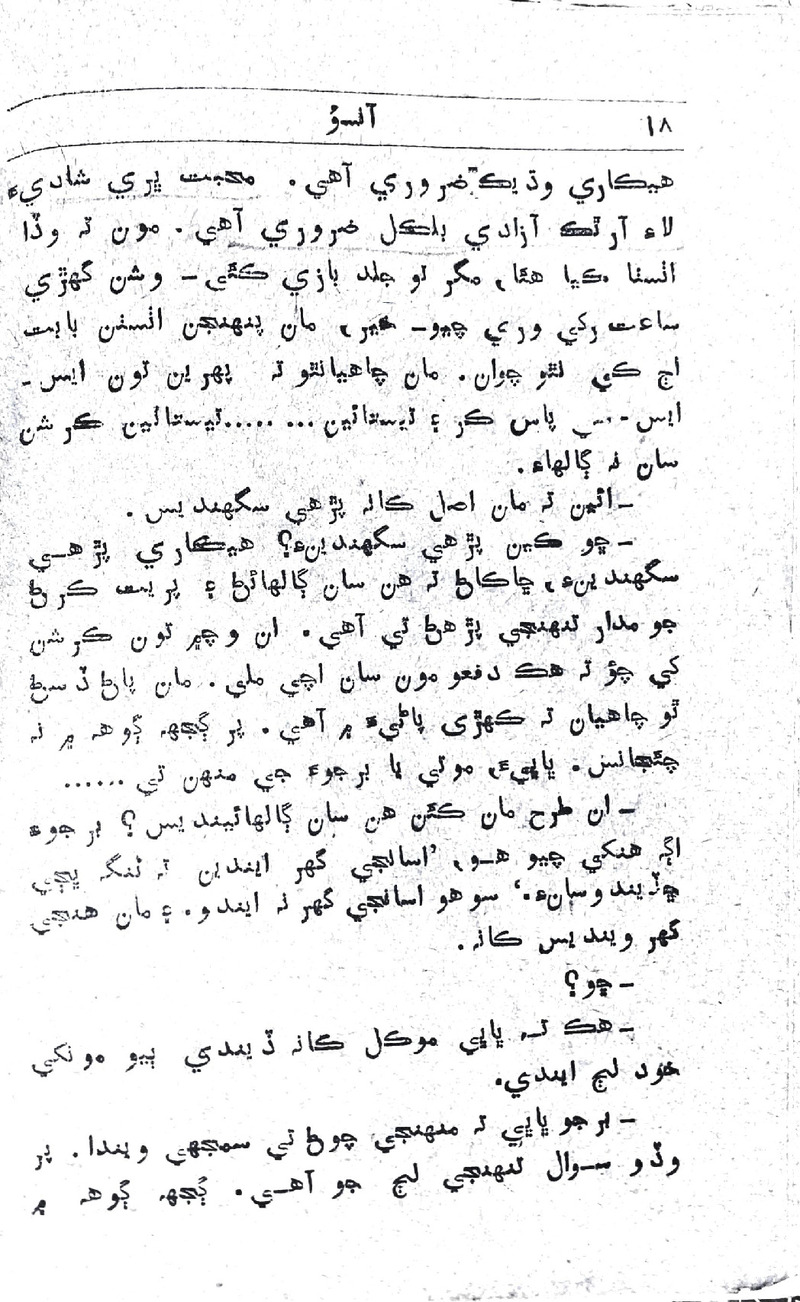 ١٨ آنسوُ
هيڪاري وڌيڪ ضروري آهي. محبت ڀري شاديءَ
لاءِ آرٿڪ آزادي بلڪل ضروري آهي. مون ته وڏا
انسنا ڪيا هئا، مگر تو جلد بازي ڪئي ـ وشن گهڙي
ساعت رکي وري چيو ـ خير، مان پنهنجن انسنن بابت
اڄ ڪي نٿو چوان. مان چاهيانٿو ته پهرين تون ايس ـ
ايس ـ سي پاس ڪر ۽ تيستائين ... ..... تيستائين ڪرشن
سان نه ڳالهاءِ.
ـ ائين ته مان اصل ڪانه پڙهي سگهنديس.
ـ ڇو ڪين پڙهي سگهندينءَ؟ هيڪاري پڙهي
سگهندينءَ، ڇاڪاڻ ته هن سان ڳالهائڻ ۽ پريت ڪرڻ
جو مدار تنهنجي پڙهڻ تي آهي. ان وچ ۾ تون ڪرشن
کي چؤ ته هڪ دفعو مون سان اچي ملي. مان پاڻ ڏسڻ
ٿو چاهيان ته ڪهڙي پاڻيءَ ۾ آهي. پر ڳجهه ڳوهه ۾ نه
چئجانس. ڀاڀيءَ، موتي يا برجوءَ جي منهن تي ......
ـ ان طرح مان ڪئن هن سان ڳالهائينديس؟ برجوءَ
اڳ هنکي چيو هو، ’اسانجي گهر ايندين ته ٽنگه ڀڃي
ڇڏيندوسانءِ.‘ سو هو اسانجي گهر نه ايندو. ۽ مان هنجي
گهر وينديس ڪانه.
ـ ڇو؟
ـ هڪ ته ڀاڀي موڪل ڪانه ڏيندي ٻيو مونکي
خود لڄ ايندي.
ـ برجو ڀاڀي ته منهنجي چوڻ تي سمجهي ويندا. پر
وڏو سوال تنهنجي لڄ جو آهي. ڳجهه ڳوهه ۾